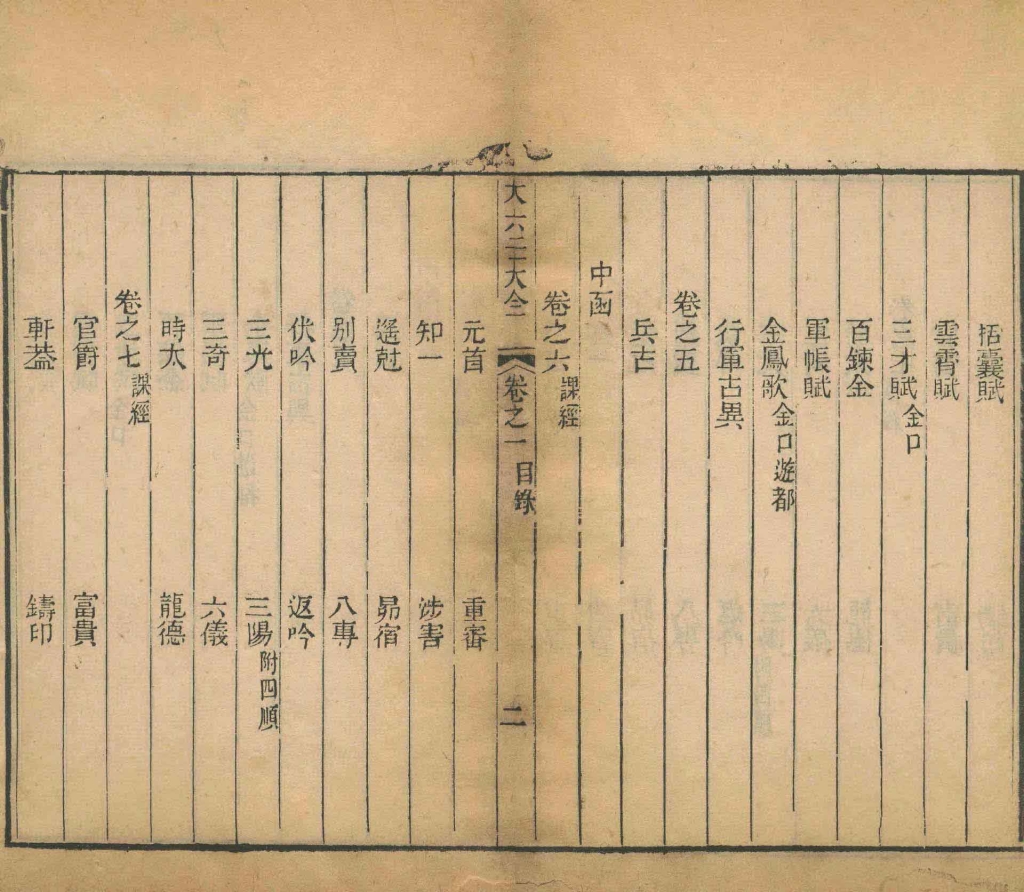 括囊賦
雲霄賦
三才賦 金口
百鍊金
軍帳賦
金鳳歌 金口遊都
行軍古異
卷之五
兵古
中函
卷之六 課經
大六壬大全 卷之一 目錄 二
元首 重審
知一 涉害
遥尅 昴宿
別責 八專
伏吟 返吟
三光 三陽 附四順
三奇 六儀
時太 龍德
卷之七 課經
官爵 富貴
軒葢 鑄印